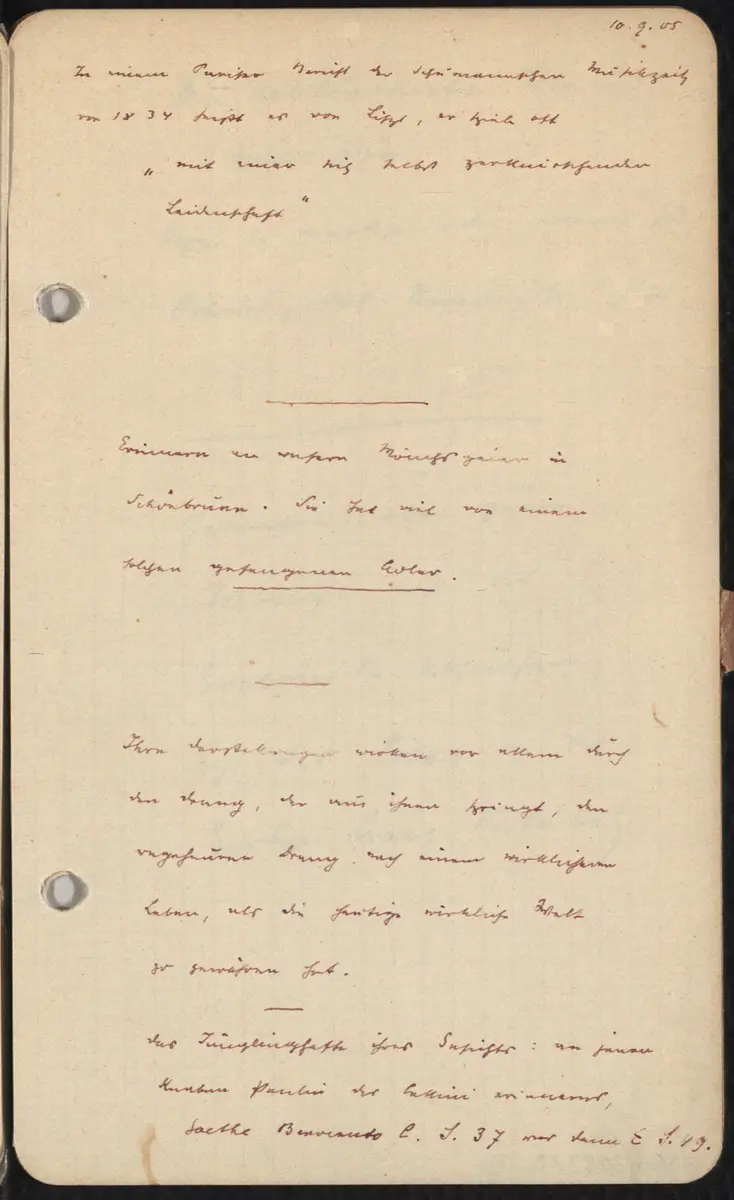 10.9.05
In einem Pariser Bericht der Schumannschen Musikzeitg
von 1834 heißt es von Liszt, er spiele oft
„mit einer sich selbst zerknirschenden
Leidenschaft"
Erinnern an unsern Mönchsgeier in
Schönbrunn. Sie hat viel von einem
solchen gefangenen Adler.
Ihre Darstellungen wirken vor allem durch
den Drang, der aus ihnen springt, den
ungeheuren Drang nach einem wirklicheren
Leben, als die heutige wirkliche Welt
zu gewähren hat.
Das Jünglinghafte ihres Gesichts: an jenen
Knaben Paulin des Cellini erinnernd,
Goethe Benvenuto C. S. 37 und dann S. 49.